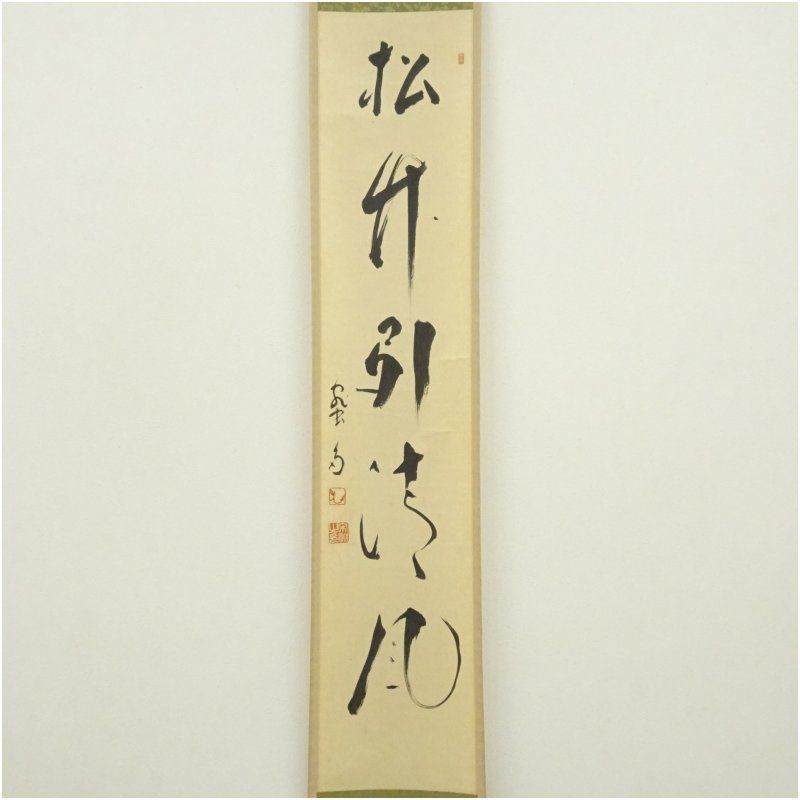 松竹引清風